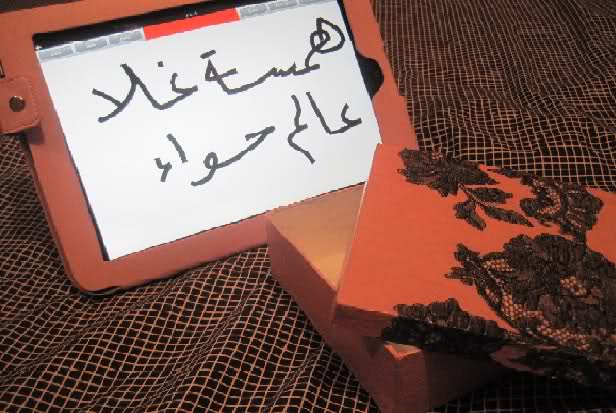 همسة غلا
عالم حواء